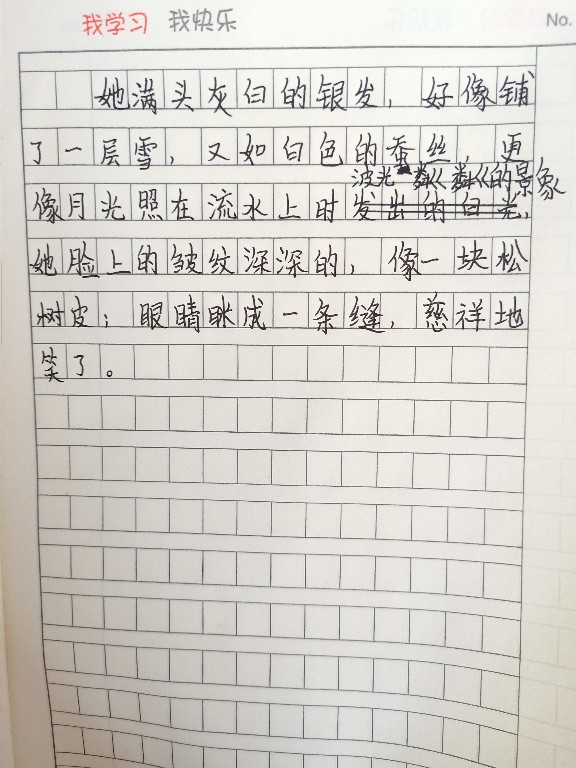 我学习 我快乐
No.
她满头灰白的银发，好像铺
了一层雪，又如白色的蚕丝，更
波光粼粼的景象
像月光照在流水上时发出的白光，
她脸上的皱纹深深的，像一块松
树皮；眼睛眯成一条缝，慈祥地
笑了。